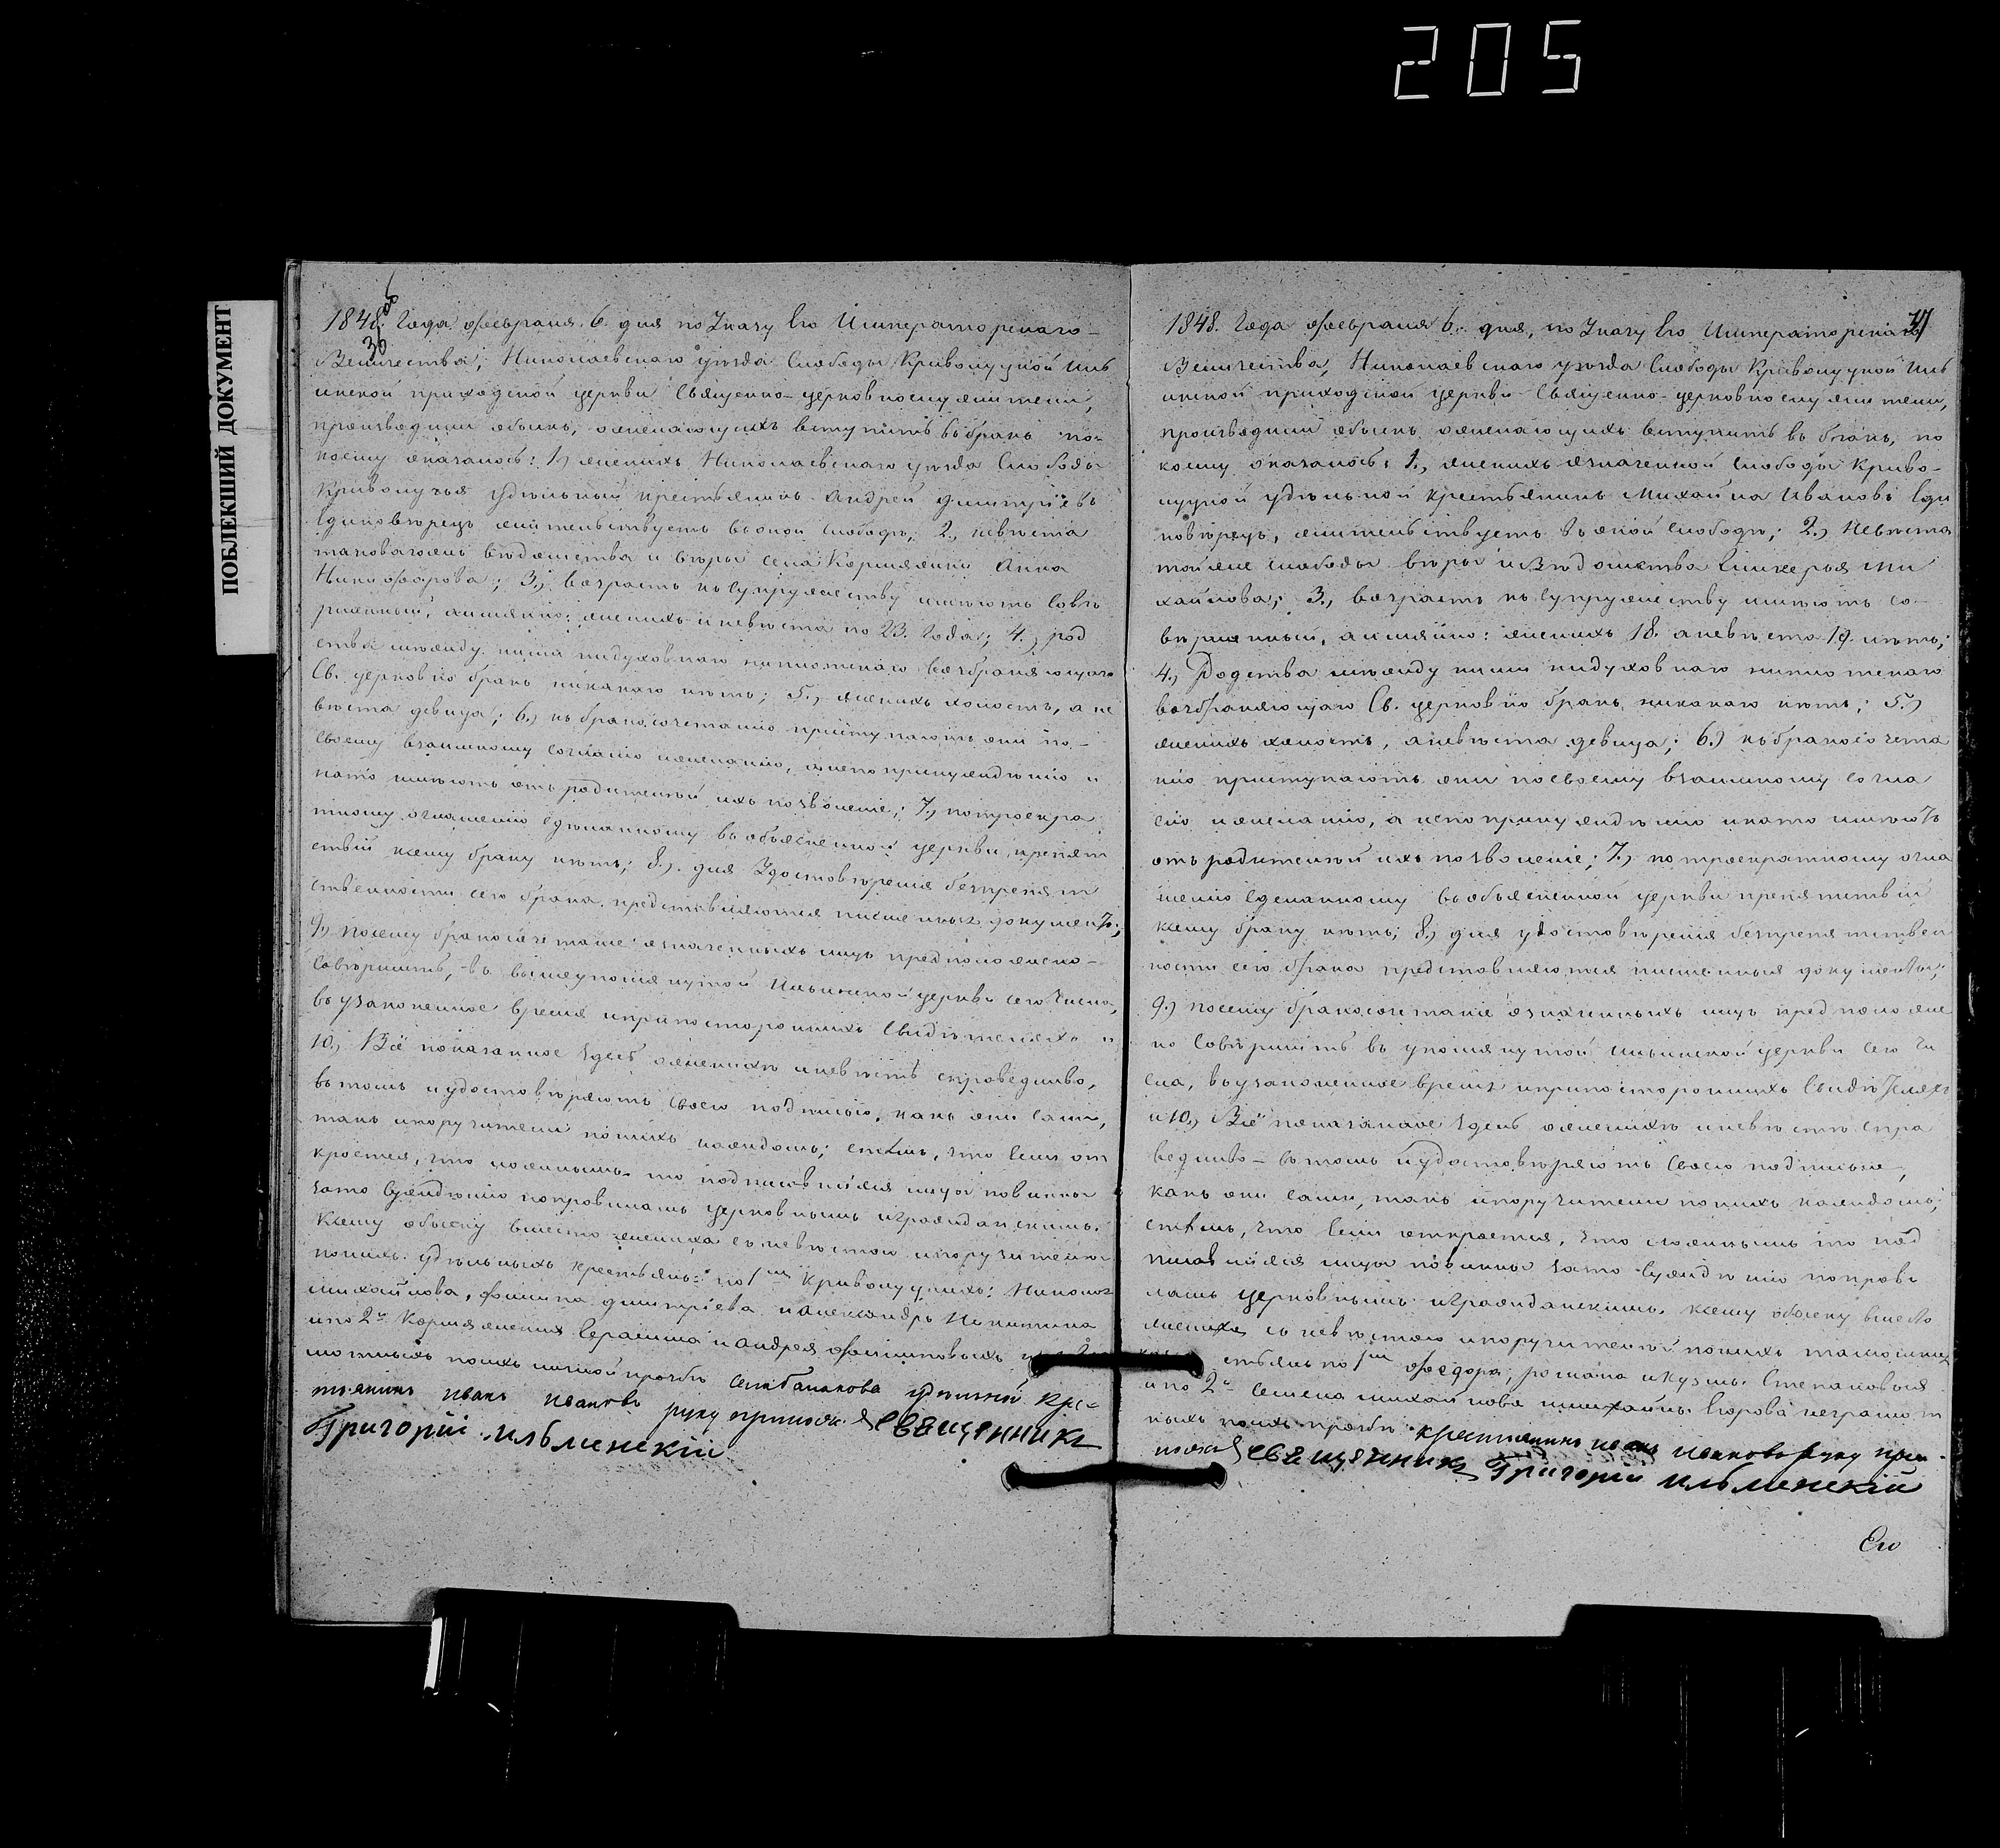 205
ПОБЛЕКШИЙ ДОКУМЕНТ
36 об
1848. Года февраля 6. дня по Указу Его Императорскаго
Величества, Николаевскаго уѣзда Слободы Криволуцкой Иль
инской приходской церкви Священно-церковнослужители,
произведши обыскъ, о желающихъ вступить въ бракъ по
коему оказалось: 1.) женихъ Николаевскаго уѣзда Слободы
Криволучья удѣльный крестьянинъ Андрей Димитріевъ
Единовѣрецъ жительствуетъ въ оной слободѣ; 2.) невѣста
таковагожъ вѣдомства и вѣры села Кормяжки Анна
Никифорова; 3.) возрастъ къ супружеству имѣютъ совѣр
шенный, а имянно: женихъ и невѣста по 23. года; 4.) род
ства между ними ни духовнаго ни плотскаго возбраняющаго
Св. церковію бракъ никакого нѣтъ; 5.) женихъ холостъ, а не
вѣста девица; 6.) къ бракосочетанію приступаютъ они по
своему взаимному согласію и желанію, а не по принужденію и
на то имѣютъ отъ родителей ихъ позволеніе; 7.) по троекра
тному оглашенію сдѣланному въ объясненной церкви препят
ствій къ сему браку нѣтъ; 8.) для удостовѣренія безпрепят
ственности сего брака представляются писменныя документы;
9.) посему бракосочетаніе означенныхъ лицъ предположено
совѣршить, въ вышеупомянутой Ильинской церкви сего числа,
въ узаконенное время и при постороннихъ свидѣтеляхъ и
10.) Всё показанное здесь о женихѣ и невѣстѣ справедливо,
въ томъ и удостовѣряютъ своею подписью, какъ они сами,
такъ и поручители по нихъ каждомъ; стѣмъ, что если от
кроется, что ложнымъ то подписавшіяся лица повинны
зато сужденію по правиламъ церковнымъ и гражданскимъ.
К сему обыску вместо жениха съ невѣстою и поручителей
по нихъ удѣльныхъ крестьянъ: по 1мъ Криволуцкихъ: Николая
Михайлова, Филипа Димитріева и Александръ Никитина
и по 2й Герасима и Андрея Филиповыхъ
мотныхъ по ихъ личной прозбе удѣльной кре-
тьянинъ иванъ ивановъ руку приложилъ священникъ
Григорій ильменскій
37
1848. Года февраля 6. дня, по Указу Его Императорскаго
Величества, Николаевскаго уѣзда Слободы Криволуцкой Иль
инской приходской церкви Священно-церковнослужители,
произведши обыскъ о желающихъ вступить въ бракъ, по
коему оказалось: 1.) женихъ означенной слободы Криво-
луцкой удѣльной крестьянинъ Михайла Ивановъ Еди
новѣрецъ, жительствуетъ въ оной слободѣ; 2.) Невѣста
той же слободы вѣры и вѣдомства Гликерья Ми
хайлова; 3.) возрастъ къ супружеству имѣютъ со-
вѣршенный, а имянно: женихъ 18. а невѣста 19. лѣтъ;
4.) Родства между ними ни духовнаго ни плотскаго
возбраняющаго Св. церковію бракъ никакого нѣтъ; 5.)
женихъ холостъ, а невѣста девица; 6.) къ бракосочета
нію приступаютъ они по своему взаимному согла
сію и желанію, а не по принужденію и на то имѣютъ
отъ родителей ихъ позволеніе; 7.) по троекратному огла
шенію сделанному въ объясненной церкви препятствій
к сему браку нѣтъ; 8.) для удостовѣренія безпрепятствен
ности сего брака представляются писменныя документы;
9.) посему бракосочетаніе означенныхъ лицъ предположе
но совѣршить въ упомянутой Ильинской церкви сего чи
сла, въ узаконенное время и при постороннихъ свидѣтеляхъ
и 10.) Всё показанное здесь о женихѣ и невѣстѣ спра
ведливо – въ томъ и удостовѣряютъ своею подписью,
какъ они сами, такъ и поручители по нихъ каждомъ;
стѣмъ, что если откроется, что ложнымъ то под
писавшіяся лица повинны зато сужденію по прави
ламъ церковнымъ и гражданскимъ. К сему обыску вместо
жениха съ невѣстою и поручителей по нихъ тамошнихъ
стьянъ по 1мъ Федора, Романа и Кузмы Степановыхъ
и по 2й Семена Михайлова Егорова неграмот
ныхъ по ихъ прозбе крестьянинъ иванъ ивановъ руку при-
ложилъ священникъ Григорій ильменскій
Его